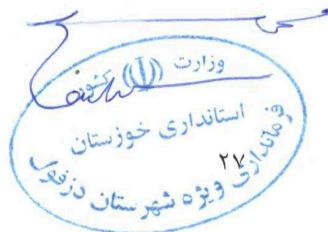 وزارت کشور
استانداری خوزستان
۲۷
فرمانداری ویژه شهرستان دزفول